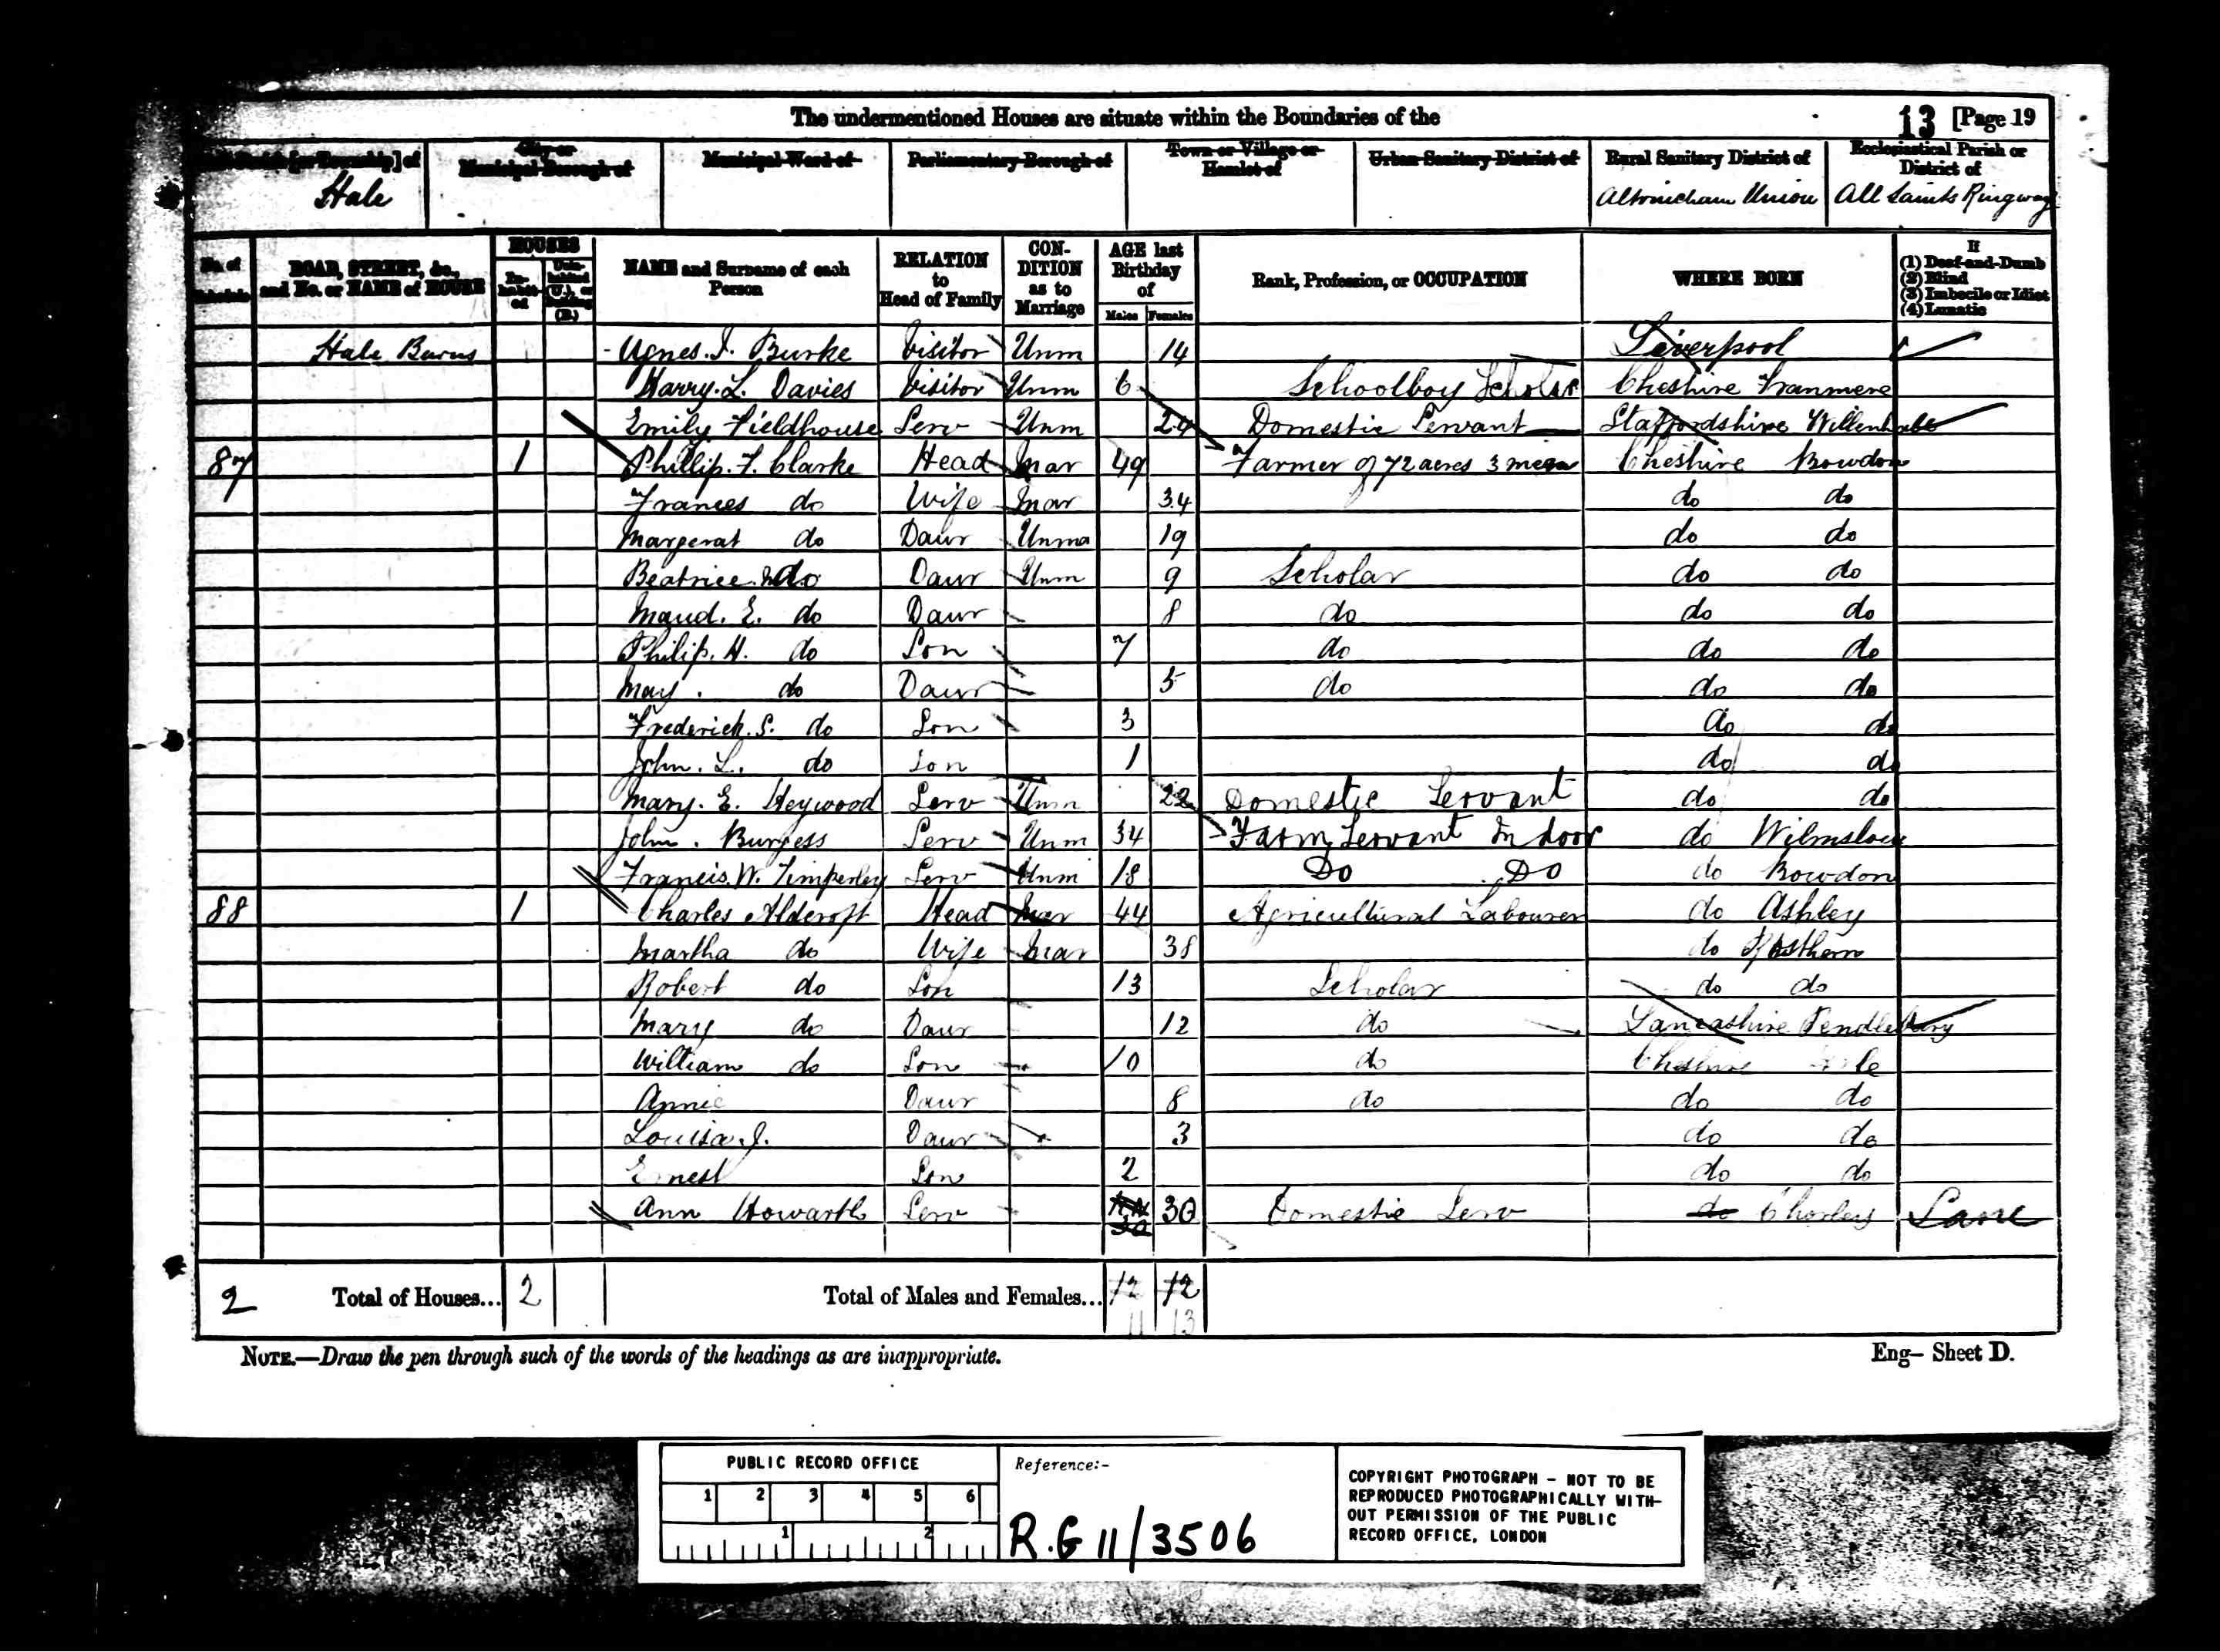 The undermentioned Houses are situate within the Boundaries of the
13 [Page 19
[or Township] of City or Municipal Borough of Municipal Ward of Parliamentary Borough of Town or Village or Hamlet of Urban Sanitary District of Rural Sanitary District of Ecclesiastical Parish or District of
Hale Altrincham Union All Saints Ringway
No. of Schedule ROAD, STREET, &c., and No. or NAME of HOUSE HOUSES Inhabited Uninhabited (U.), or Building (B.) NAME and Surname of each Person RELATION to Head of Family CONDITION as to Marriage AGE last Birthday of Males Females Rank, Profession, or OCCUPATION WHERE BORN If (1) Deaf-and-Dumb (2) Blind (3) Imbecile or Idiot (4) Lunatic
Hale Barns Agnes. J. Burke Visitor Unm 14 Liverpool
Harry. L. Davies Visitor Unm 6 Schoolboy Scholar Cheshire Tranmere
Emily Fieldhouse Serv Unm 24 Domestic Servant Staffordshire Willenhall
87 1 Phillip. F. Clarke Head Mar 49 Farmer of 72 acres 3 men Cheshire Bowdon
Frances do Wife Mar 34 do do
Margerat do Daur Unma 19 do do
Beatrice. do Daur Unm 9 Scholar do do
Maud. E. do Daur 8 do do do
Philip. H. do Son 7 do do do
May. do Daur 5 do do do
Frederick. S. do Son 3 do do
John. L. do Son 1 do do
Mary. E. Heywood Serv Unm 22 Domestic Servant do do
John. Burgess Serv Unm 34 Farm Servant In door do Wilmslow
Francis. W. Timperley Serv Unm 18 Do Do do Bowdon
88 1 Charles Aldcroft Head Mar 44 Agricultural Labourer do Ashley
Martha do Wife Mar 38 do Rosthern
Robert do Son 13 Scholar do do
Mary do Daur 12 do Lancashire Pendlebury
William do Son 10 do Cheshire
Annie Daur 8 do do do
Louisa. J. Daur 3 do do
Ernest Son 2 do do
Ann Howarth Serv 30 30 Domestic Serv do Chorley Lanc
2 Total of Houses... 2 Total of Males and Females... 12 12
11 13
NOTE.—Draw the pen through such of the words of the headings as are inappropriate.
Eng- Sheet D.
PUBLIC RECORD OFFICE
1 2 3 4 5 6
1 2
Reference:-
R.G 11/3506
COPYRIGHT PHOTOGRAPH - NOT TO BE
REPRODUCED PHOTOGRAPHICALLY WITH-
OUT PERMISSION OF THE PUBLIC
RECORD OFFICE, LONDON